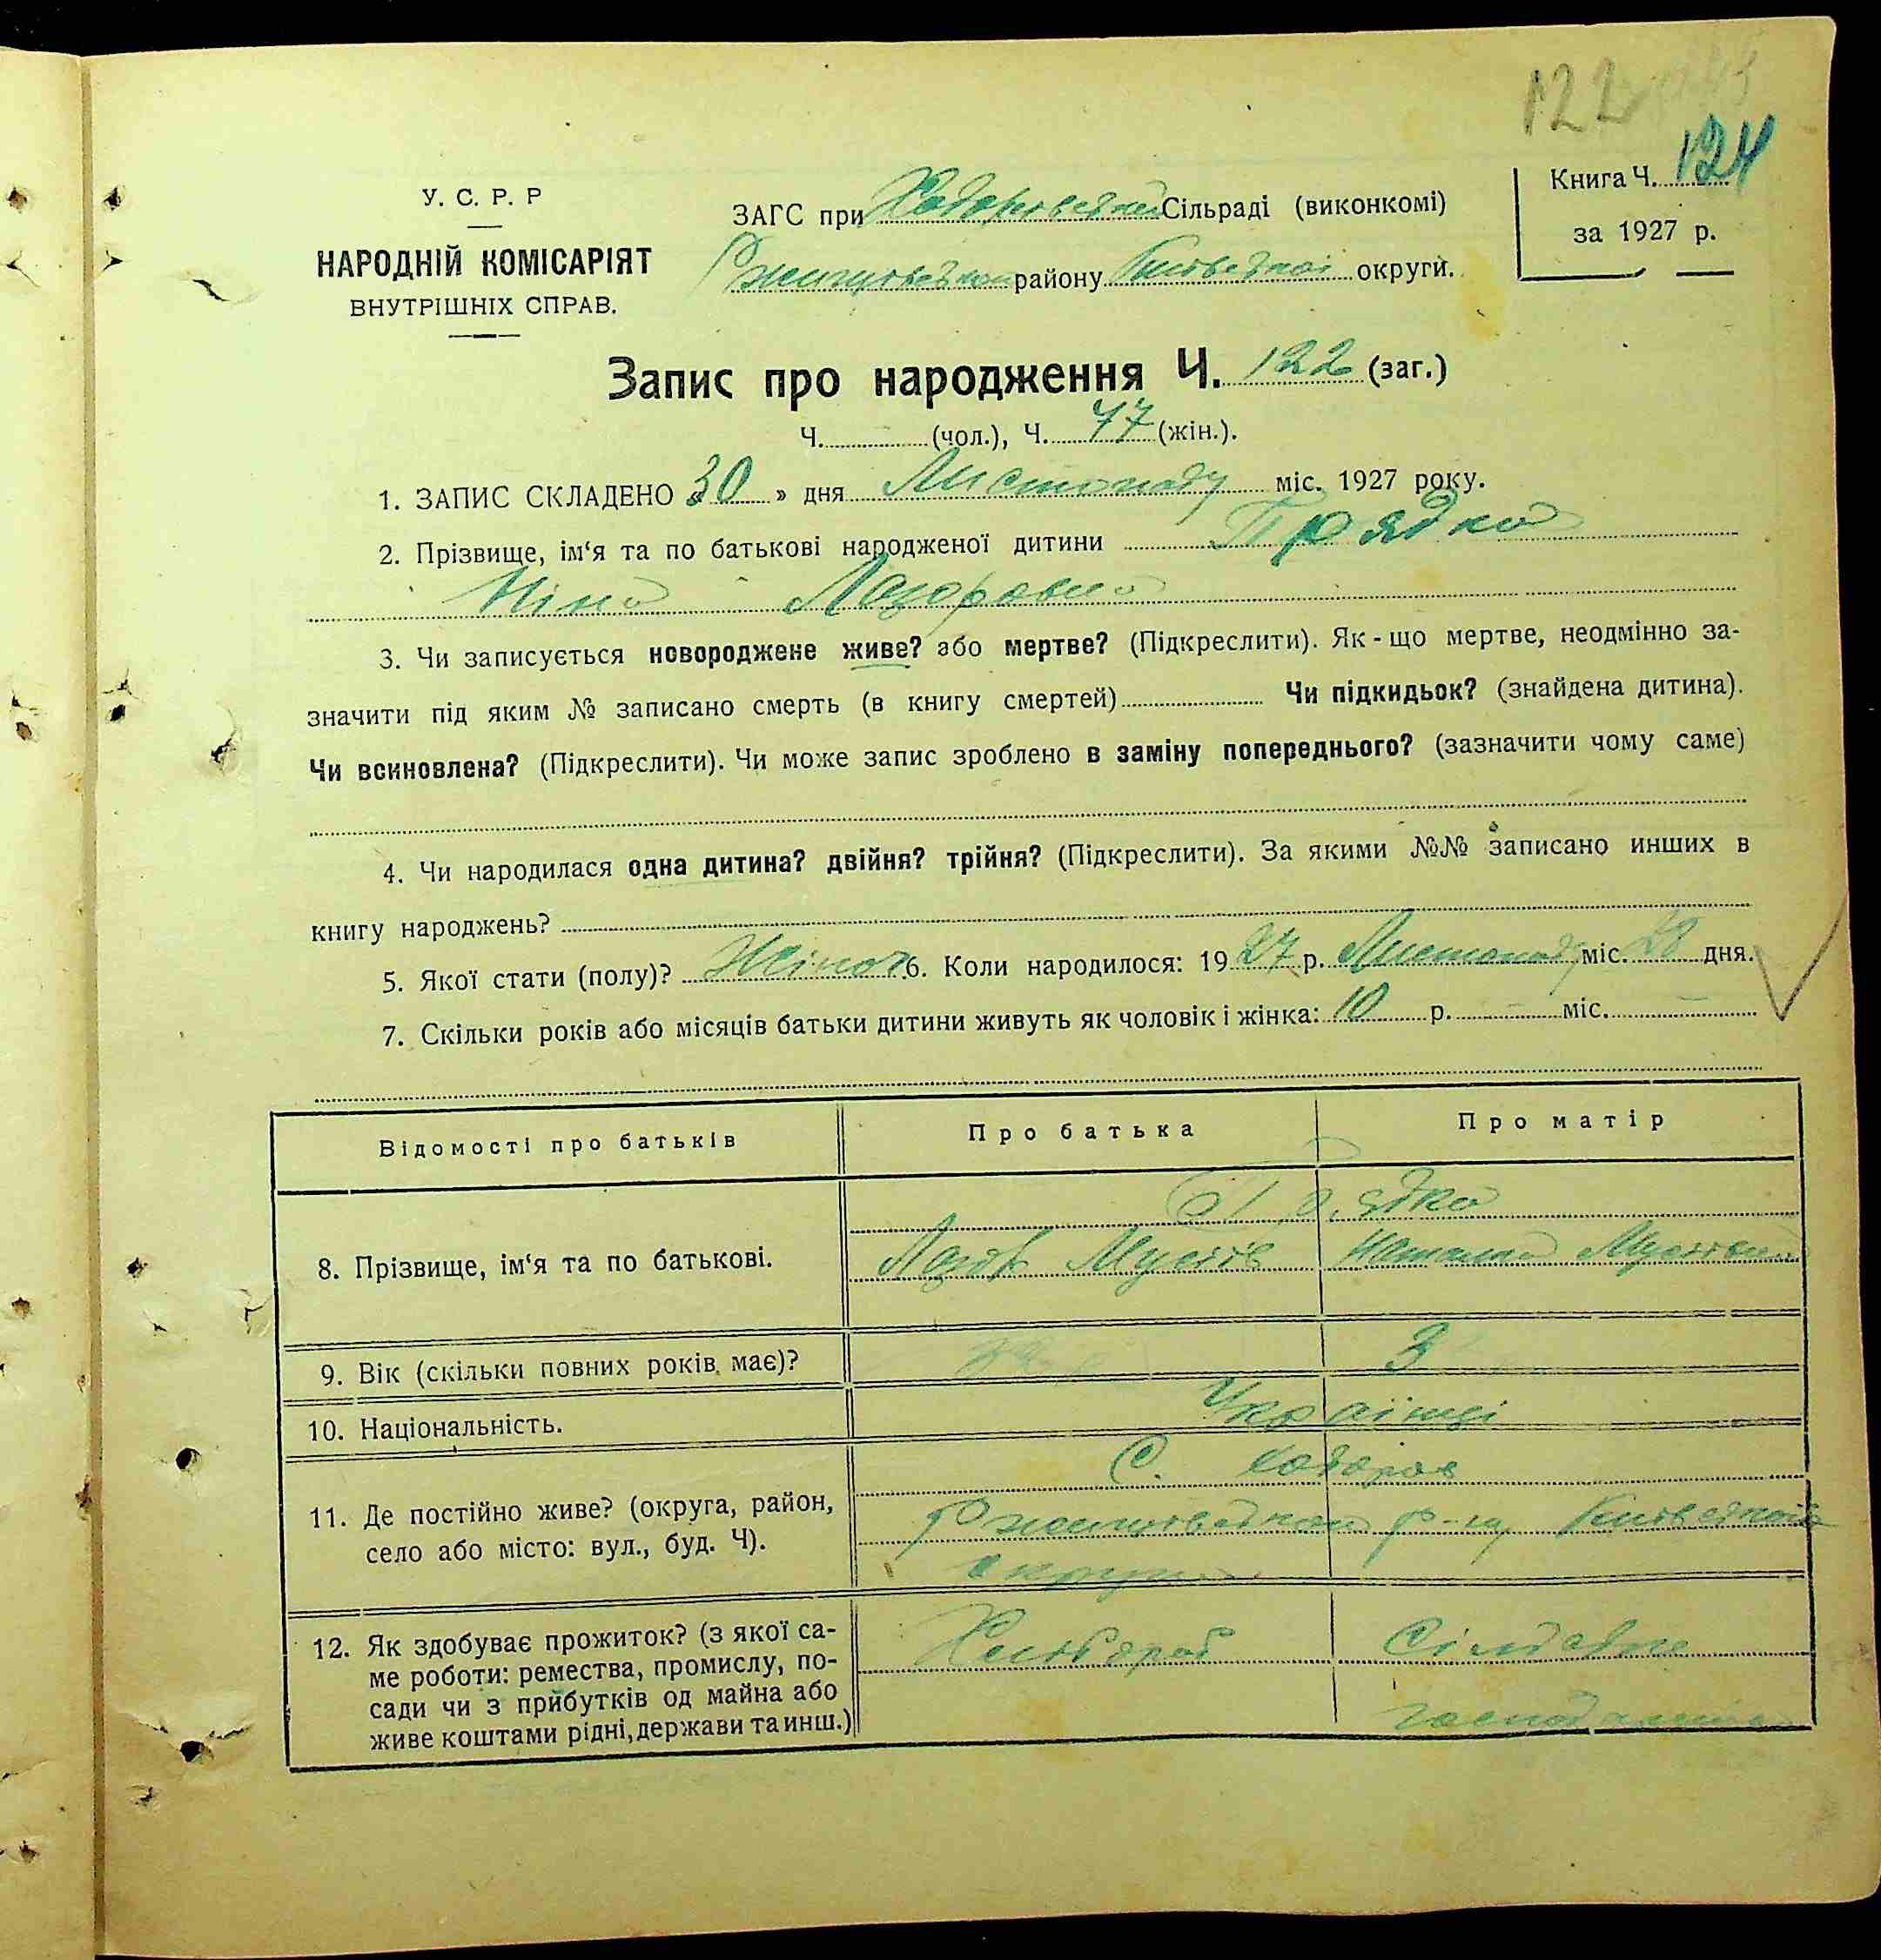 122
У. С. Р. Р
НАРОДНІЙ КОМІСАРІЯТ
ВНУТРІШНІХ СПРАВ.
ЗАГС при Ходорівській Сільраді (виконкомі)
Ржищівського району Київської округи.
Книга Ч. 124
за 1927 р.
Запис про народження Ч. 122 (заг.)
Ч. (чол.), Ч. 77 (жін.).
1. ЗАПИС СКЛАДЕНО « 30 » дня Листопаду міс. 1927 року.
2. Прізвище, ім'я та по батькові народженої дитини Прядко
Ніна Лазоровна
3. Чи записується новороджене живе? або мертве? (Підкреслити). Як-що мертве, неодмінно за-
значити під яким № записано смерть (в книгу смертей) Чи підкидьок? (знайдена дитина).
Чи всиновлена? (Підкреслити). Чи може запис зроблено в заміну попереднього? (зазначити чому саме)
4. Чи народилася одна дитина? двійня? трійня? (Підкреслити). За якими №№ записано инших в
книгу народжень?
5. Якої стати (полу)? Жіноч 6. Коли народилося: 1927 р. Листопаду міс. 28 дня.
7. Скільки років або місяців батьки дитини живуть як чоловік і жінка: 10 р. — міс. —
Відомості про батьків Про батька Про матір
8. Прізвище, ім'я та по батькові.
Прядко
Лазор Мусіїв Наталия
9. Вік (скільки повних років має)? 3
10. Національність. Українці
11. Де постійно живе? (округа, район,
село або місто: вул., буд. Ч).
С. Ходоров
Ржищівського р-ну Київської
округи
12. Як здобуває прожиток? (з якої са-
ме роботи: ремества, промислу, по-
сади чи з прибутків од майна або
живе коштами рідні, держави та инш.)
Хлібороб Сільське